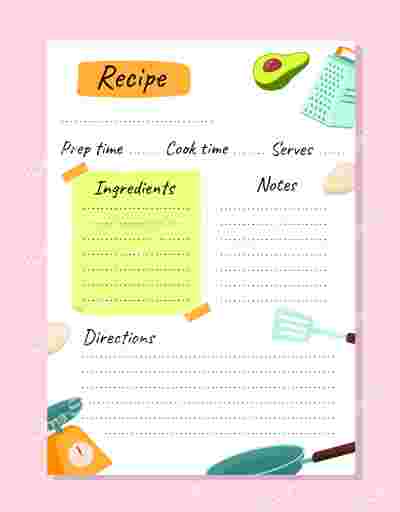 Recipe
Prep time ...... Cook time ...... Serves ......
Ingredients
Notes
Directions